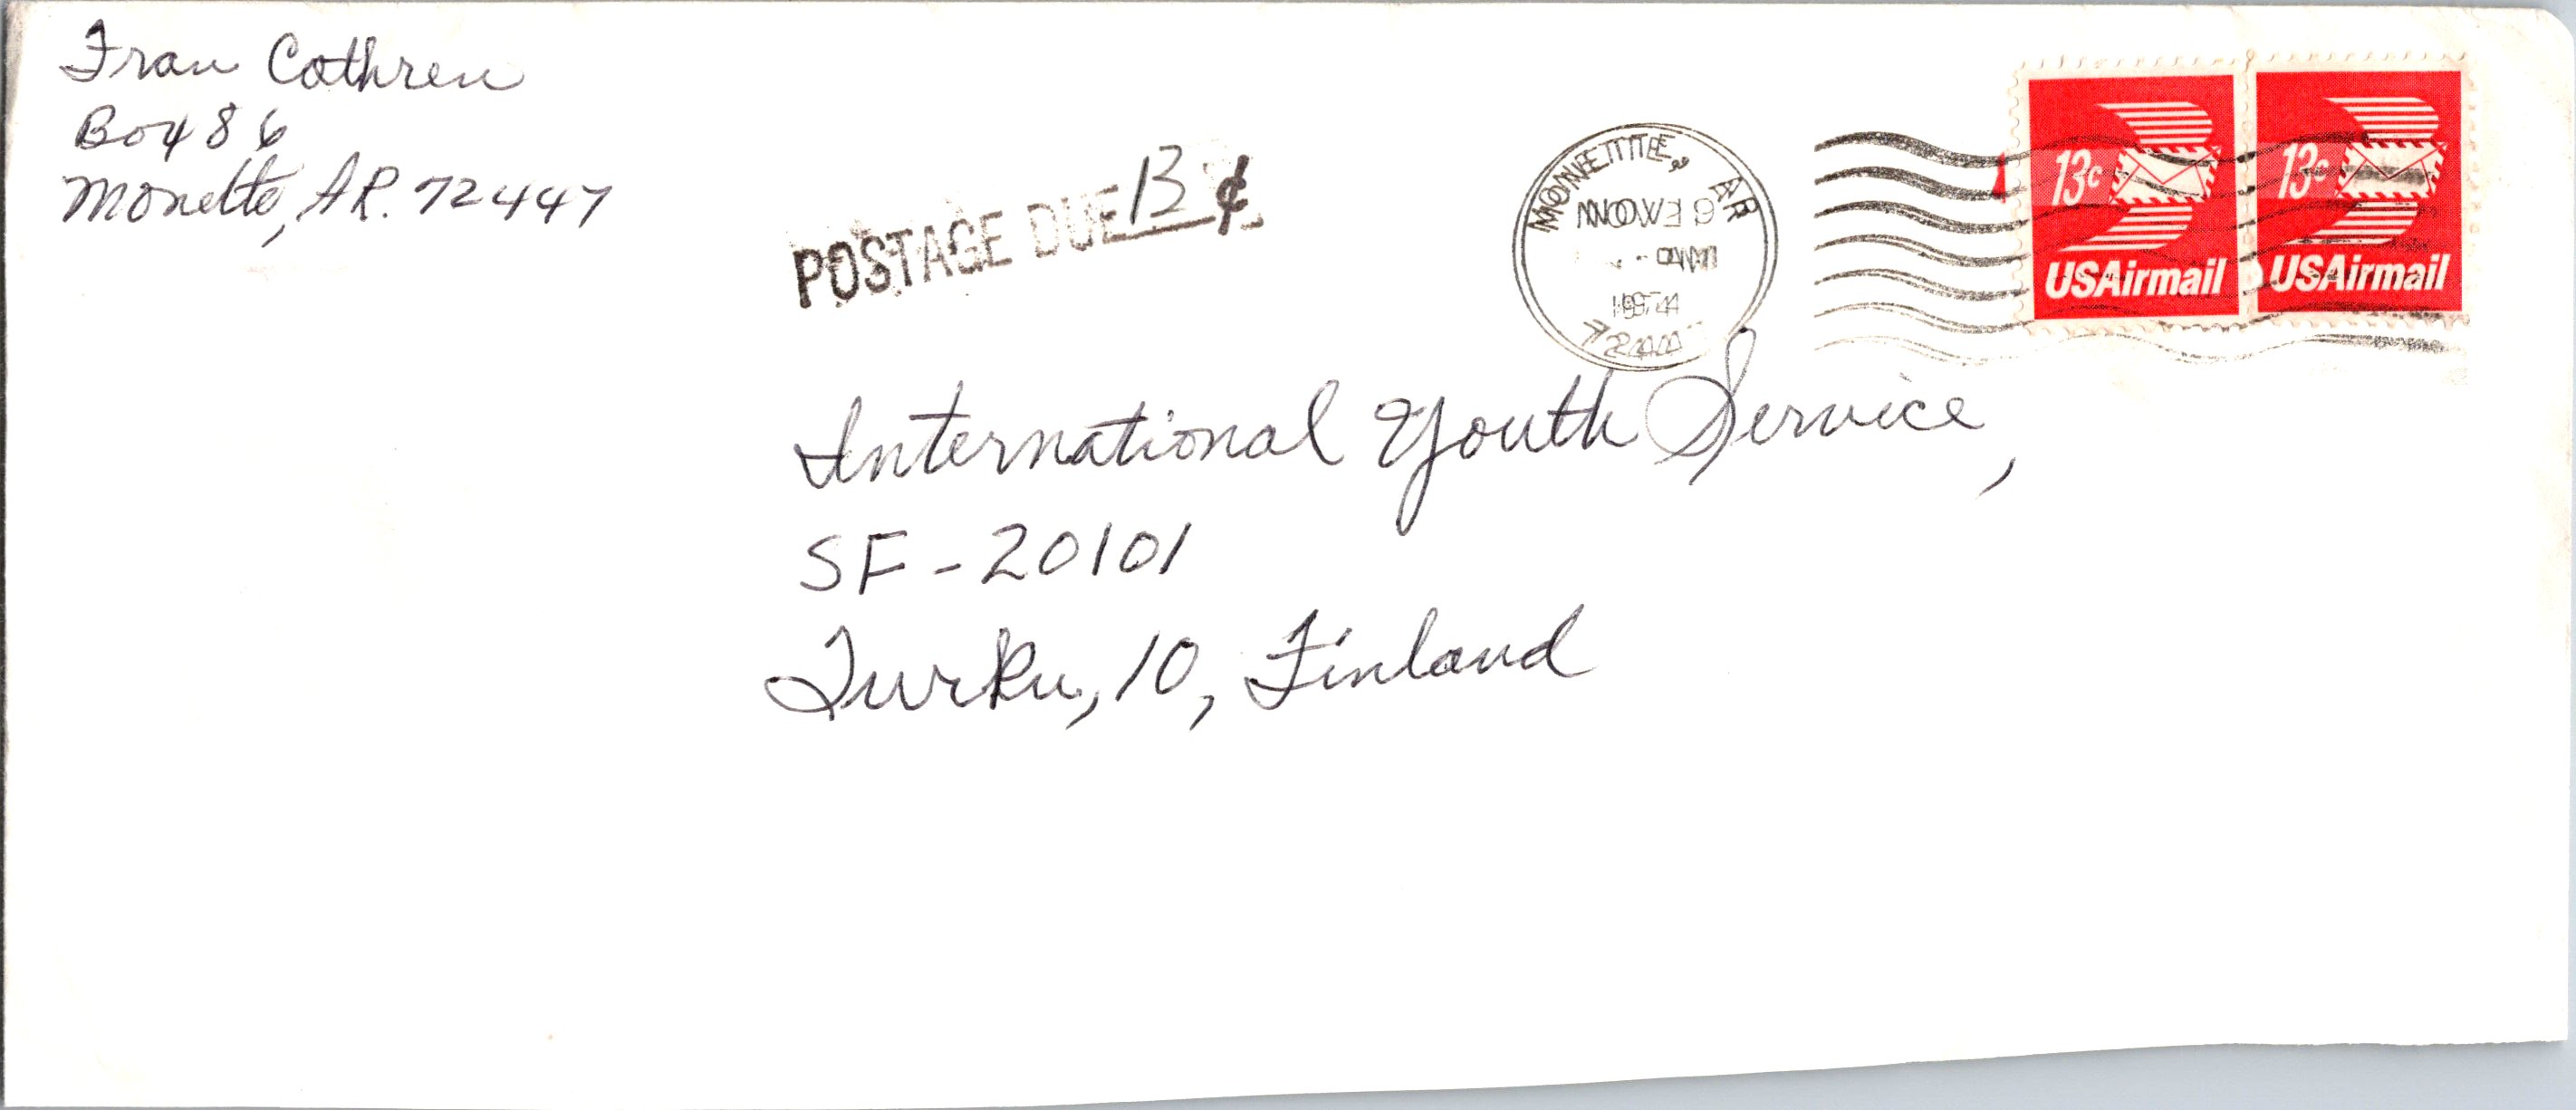 Fran Cothren
Box 486
Monette, AR. 72447
POSTAGE DUE 13 ¢
MONETTE, AR
13c
USAirmail
13c
USAirmail
International Youth Service,
SF-20101
Turku, 10, Finland